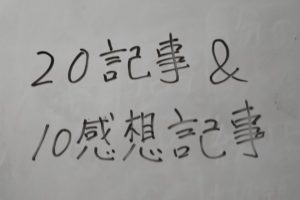 20記事&
10感想記事